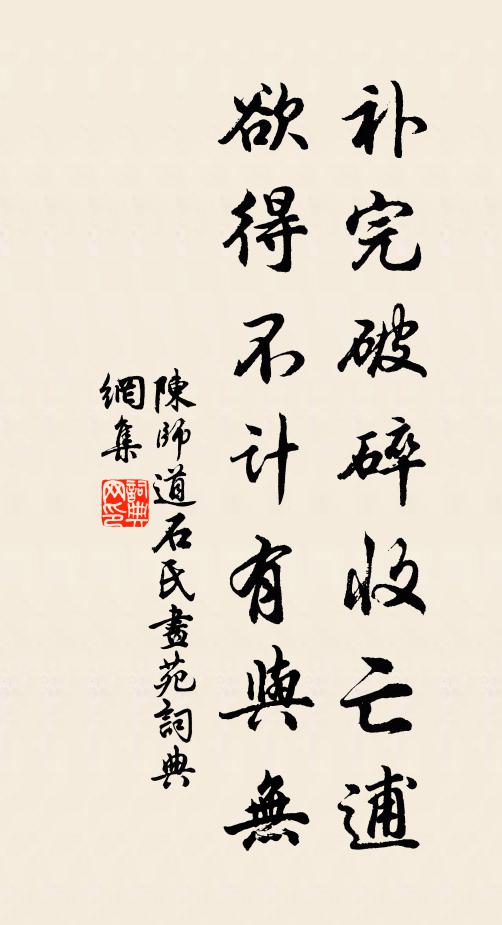 补完破碎收亡逋
欲得不计有與無
陳師道石氏畫苑詞典
網集
詞典
网印